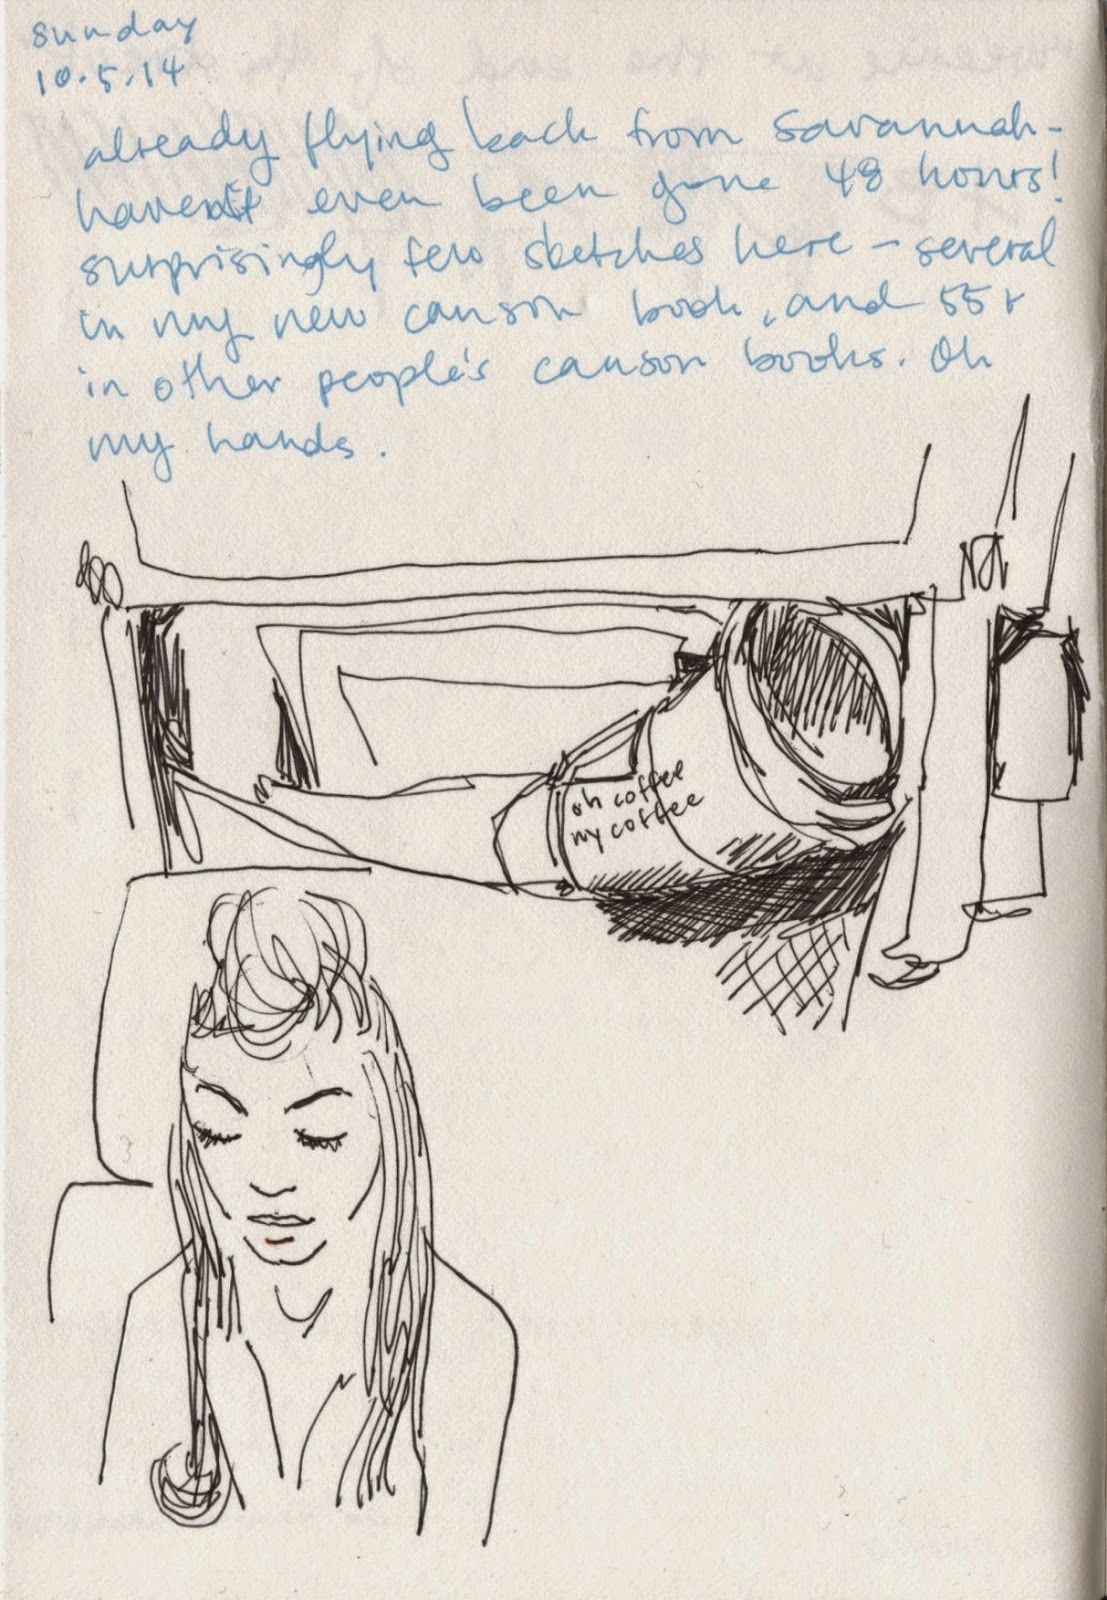 sunday
10.5.14
already flying back from savannah-
haven't even been gone 48 hours!
surprisingly few sketches here - several
in my new canson book, and 55+
in other people's canson books. Oh
my hands.
oh coffee
my coffee